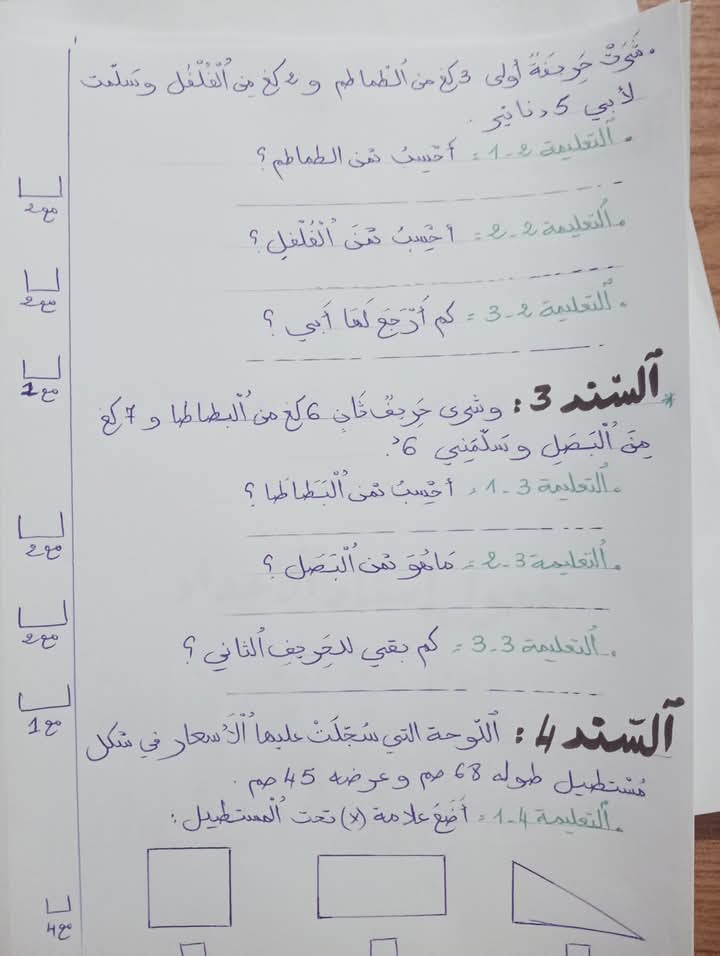 . شَرَتْ حَرِيفَةٌ أولى 3 كغ من الطماطم و 2 كغ مِن ٱلْفُلْفُل وسَلّمت
لأبي 5 دنانير.
. ٱلتعليمة 2-1 = أحْسِبُ ثمن الطماطم ؟
مع2
. ٱلتعليمة 2-2 = أحْسِبُ ثمَنَ ٱلْفُلْفلِ ؟
مع2
. ٱلتعليمة 2-3 = كم أَرْجَعَ لَهَا أَبي ؟
مع1
* ٱلسّند 3 : وشرى حَرِيفٌ ثَانٍ 6 كغ من ٱلبطاطا و 7 كغ
مِنَ ٱلْبَصَلِ وسَلّمَنِي 6د.
. ٱلتعليمة 3-1 = أحْسِبُ ثمن ٱلْبَطَاطَا ؟
مع2
. ٱلتعليمة 3-2 = مَاهُوَ ثمن ٱلْبَصَل ؟
مع2
. ٱلتعليمة 3-3 = كم بقي للحَرِيفِ ٱلثاني ؟
مع1
ٱلسّند 4 : ٱللّوحة التي سُجّلَتْ عليها ٱلْأَسعار في شكل
مُسْتطيل طوله 68 صم وعرضه 45 صم .
. ٱلتعليمة 4-1 = أَضَعُ علامة (x) تحت ٱلْمستطيل :
مع4